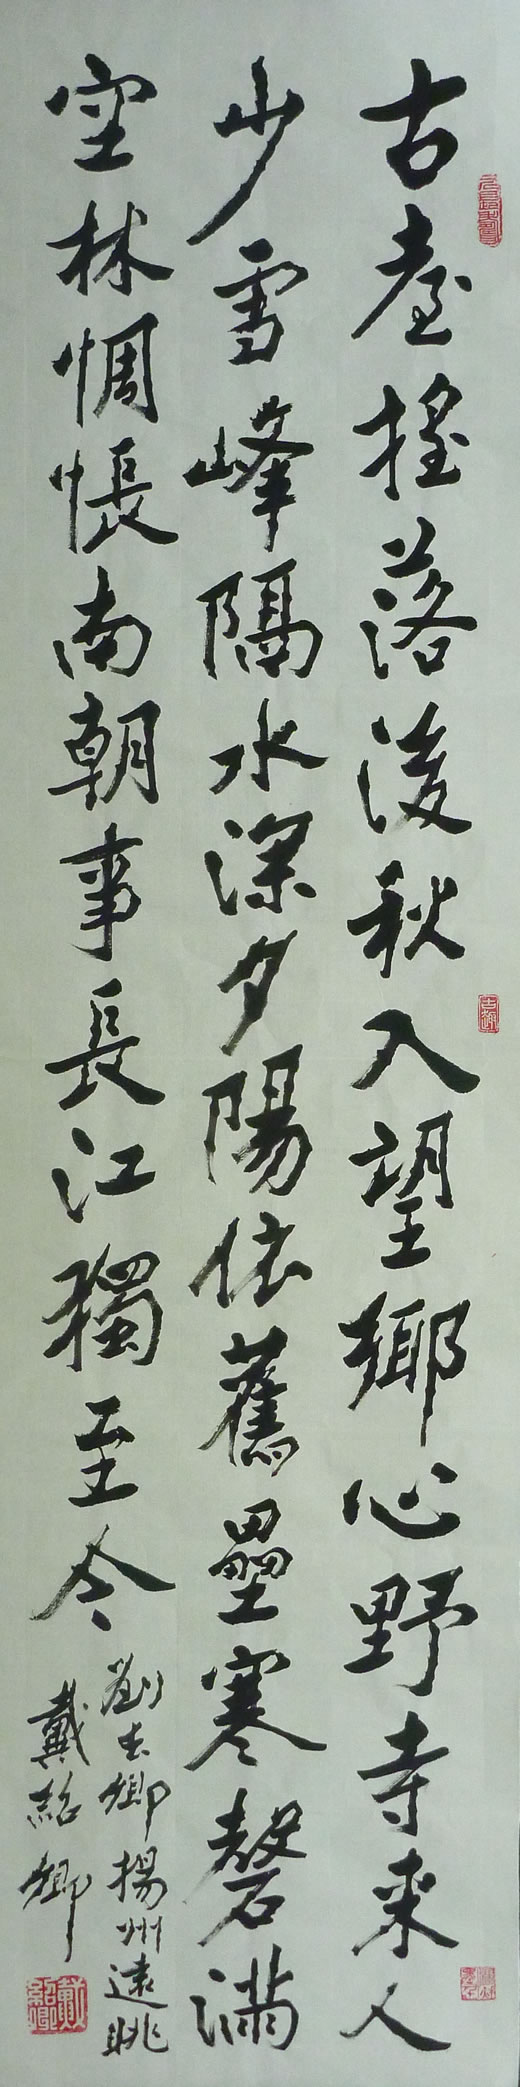 古臺搖落後秋入望鄉心野寺来人
少雪峰隔水深夕陽依舊壘寒磬滿
空林惆悵南朝事長江獨至今
劉長卿揚州遠眺
戴紹卿
戴紹卿
古趣